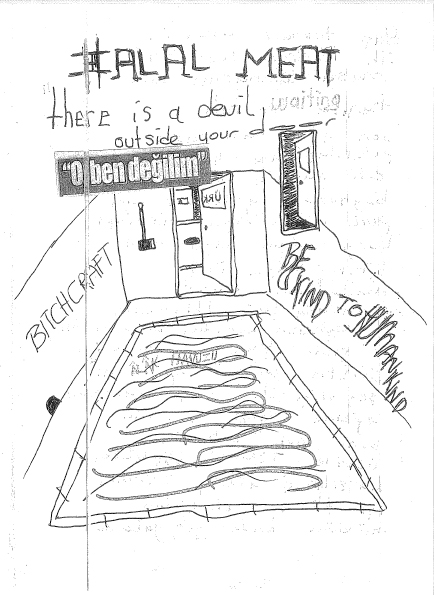 #ALAL MEAT
there is a devil waiting
outside your d _ _ r
"O ben değilim"
BITCHCRAFT
BE
KIND TO
HUMANKIND